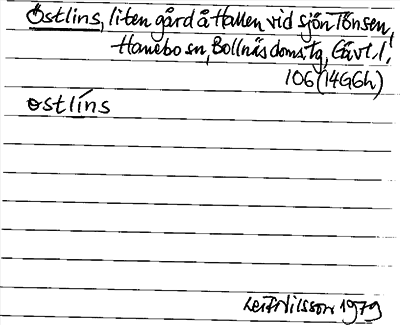 Östlins, liten gård å Hallen vid sjön Tönsen,
Hanebo sn, Bollnäs doms.tg, Gävl.l.
106 (14G6h)
ostlíns
Leif Nilsson 1979